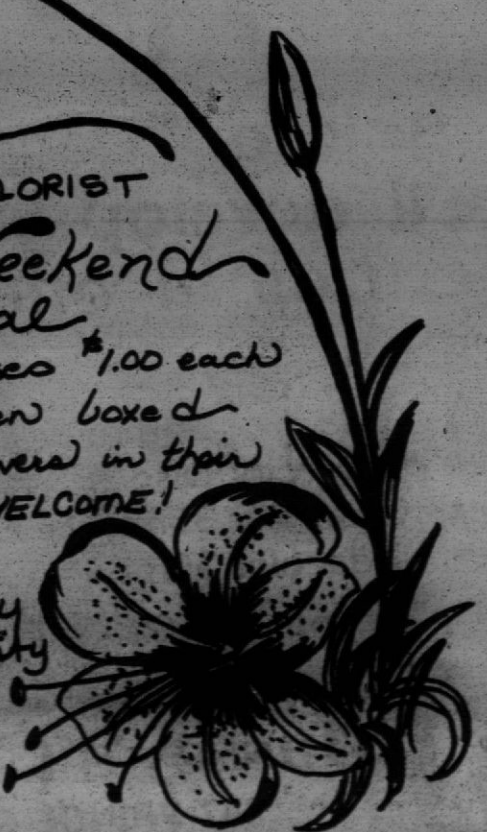 LORIST
eekend
al
es $1.00 each
en boxed
vers in their
WELCOME!
y
ity